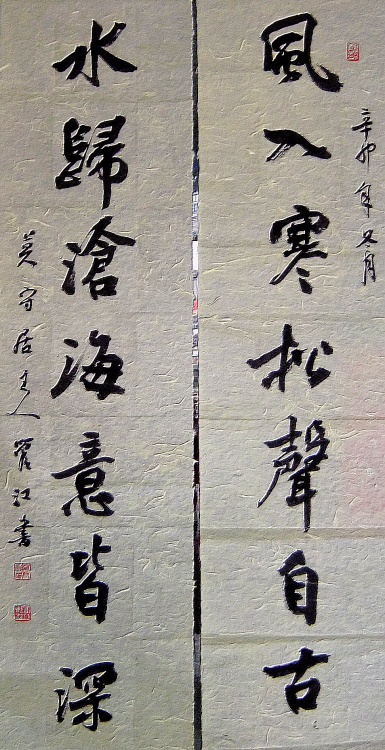 辛卯年又月
風入寒松聲自古
水歸滄海意皆深
居主人翟江書